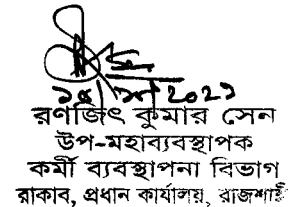 রণজিৎ কুমার সেন
উপ-মহাব্যবস্থাপক
কর্মী ব্যবস্থাপনা বিভাগ
রাকাব, প্রধান কার্যালয়, রাজশাহী